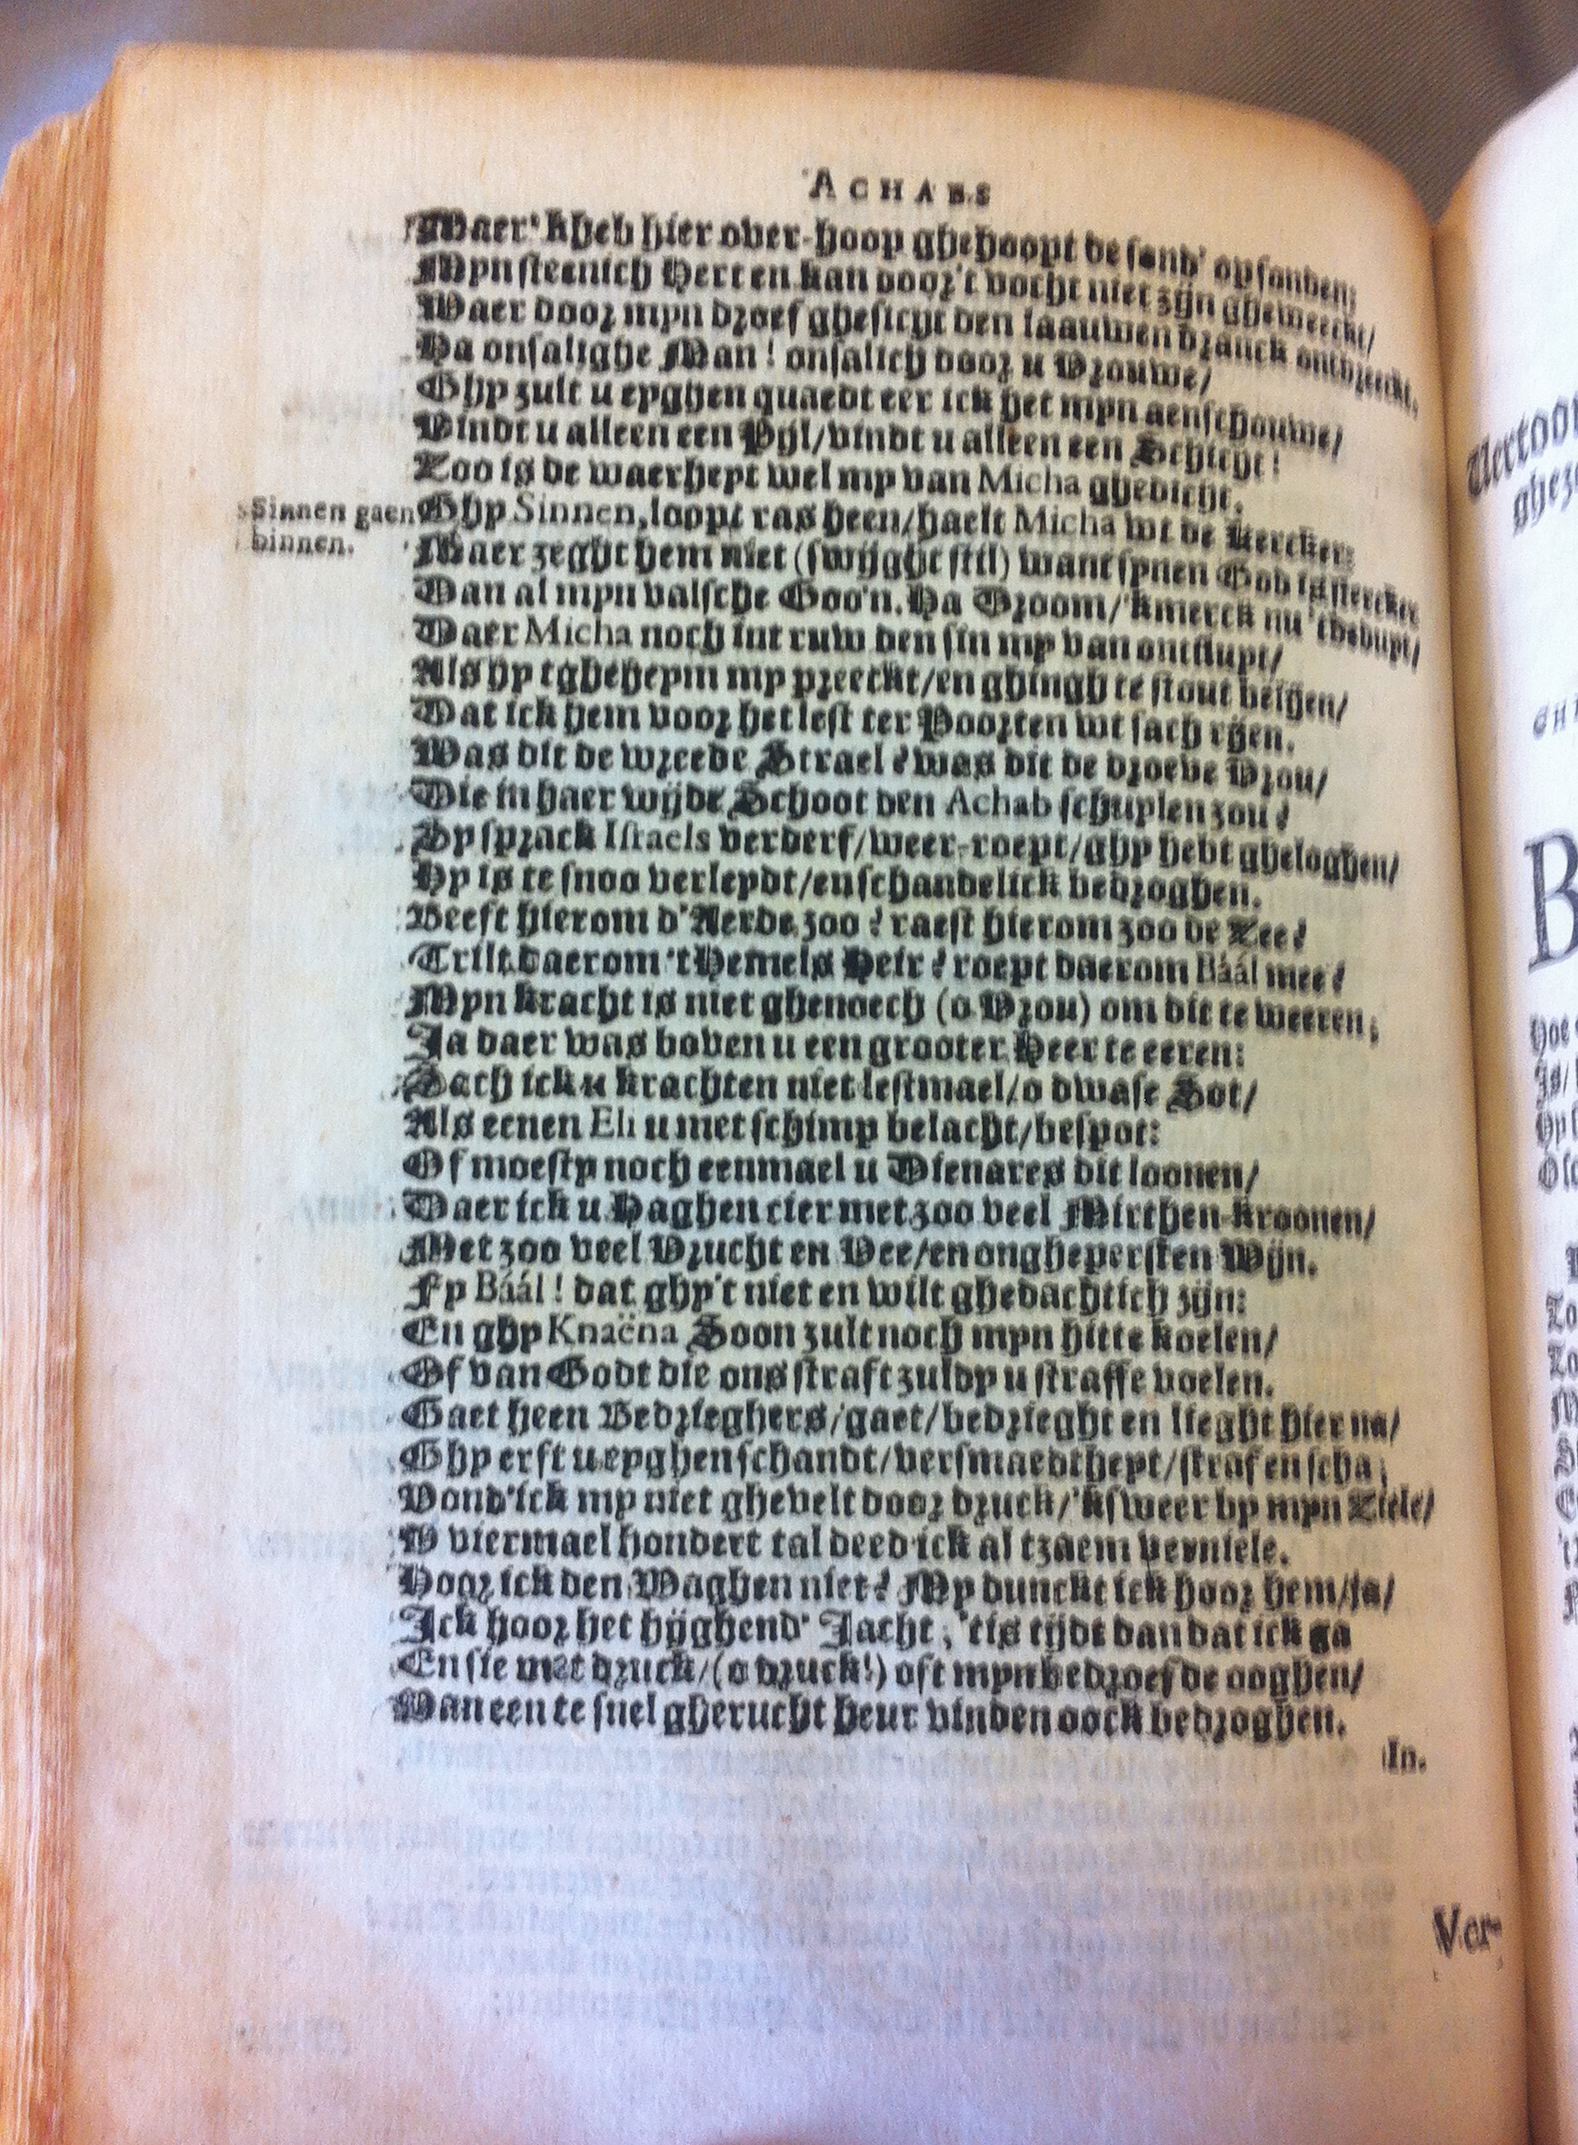 ACHABS
Maer 'kheb hier over-hoop ghehoopt de sond' op sonden;
Myn steenich Hert en kan door't vocht niet zijn gheweeckt/
Waer door myn droef ghesicht den laauwen dranck ontbreeckt,
Ha onsalighe Man! onsalich door u Vrouwe/
Ghy zult u eyghen quaedt eer ick het myn aenschouwe/
Vindt u alleen een Pijl/vindt u alleen een Schicht!
Zoo is de waerheyt wel my van Micha ghedicht.
Sinnen gaen binnen.
Ghy Sinnen, loopt ras heen/haelt Micha wt de Kercker:
Maer zeght hem niet (swijght stil) want synen God is stercker
Dan al myn valsche Goo'n. Ha Droom/'kmerck nu 'tbeduyt/
Daer Micha noch int ruw den sin my van ontsluyt/
Als hy tgheheym my preeckt/en ghingh te stout belijen/
Dat ick hem voor het lest ter Poorten wt sach rijen.
Was dit de wreede Strael? was dit de droeve Vrou/
Die in haer wijde Schoot den Achab schuylen zou?
Sy sprack Israels verderf/weer-roept/ghy hebt gheloghen/
Hy is te snoo verleydt/en schandelick bedroghen.
Beeft hierom d'Aerde zoo? raest hierom zoo de Zee?
Trilt daerom 't Hemels Heir? roept daerom Báál mee?
Myn kracht is niet ghenoech (o Vrou) om dit te weeren;
Ja daer was boven u een grooter Heer te eeren:
Sach ick u krachten niet lestmael/o dwase Sot/
Als eenen Eli u met schimp belacht/bespot:
Of moesty noch eenmael u Dienares dit loonen/
Daer ick u Haghen cier met zoo veel Mirthen-kroonen/
Met zoo veel Vrucht en Vee/en ongheperften Wijn.
Fy Báál! dat ghy't niet en wilt ghedachtich zijn:
En ghy Knaëna Soon zult noch myn hitte koelen/
Of van Godt die ons straft zuldy u straffe voelen.
Gaet heen Bedrieghers/gaet/bedrieght en lieght hier na/
Ghy erft u eyghen schandt/versmaedtheyt/straf en scha;
Vond'ick my niet ghevelt door druck/'ksweer by myn Ziele/
V viermael hondert tal deed ick al tzaem verniele.
Hoor ick den Waghen niet? My dunckt ick hoor hem/ja/
Ick hoor het hijghend' Jacht, 'tis tijdt dan dat ick ga
En sie met druck/(o druck!) oft myn bedroefde ooghen/
Van een te snel gherucht heur vinden oock bedroghen.
In.
Ver-